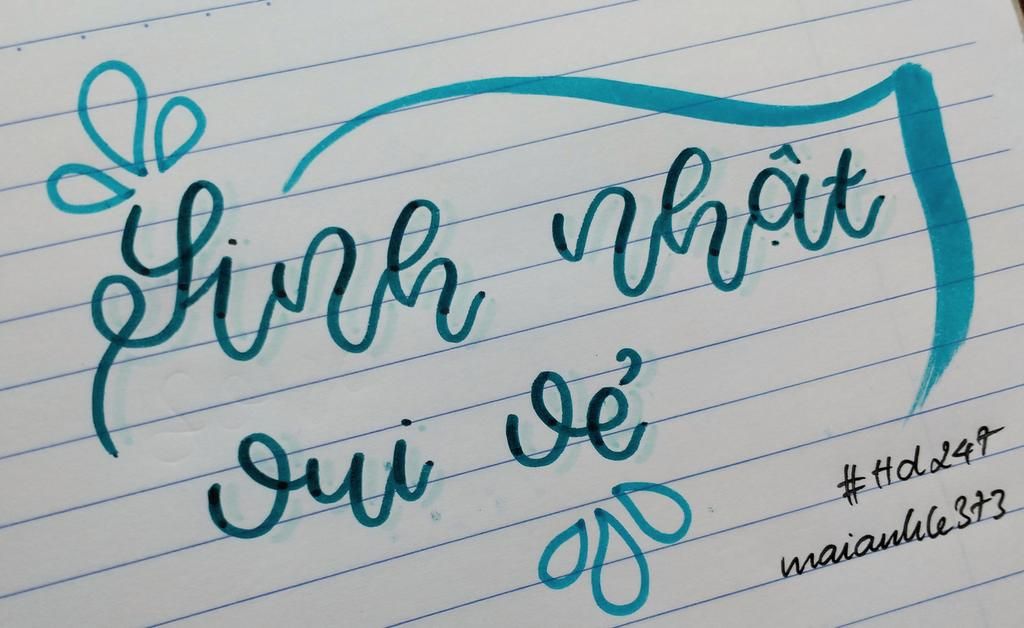 Sinh nhật
vui vẻ
#Hd247
maianhle373